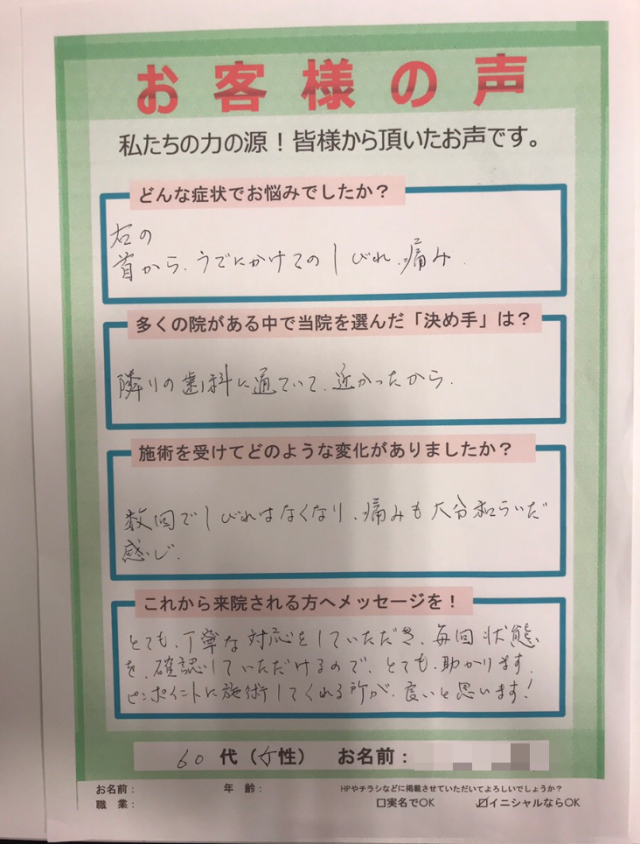 お客様の声
私たちの力の源！皆様から頂いたお声です。
どんな症状でお悩みでしたか？
右の
首から、うでにかけてのしびれ、痛み.
多くの院がある中で当院を選んだ「決め手」は？
隣りの歯科に通ていて、近かったから.
施術を受けてどのような変化がありましたか？
数回でしびれはなくなり、痛みも大分和らいだ
感じ.
これから来院される方へメッセージを！
とても、丁寧な対応をしていただき、毎回状態
を、確認していただけるので、とても、助かります.
ピンポイントに施術してくれる所が、良いと思います!
60代（女性）　お名前：
お名前：　年齢：　HPやチラシなどに掲載させていただいてよろしいでしょうか？
職業：　□実名でOK　☑イニシャルならOK